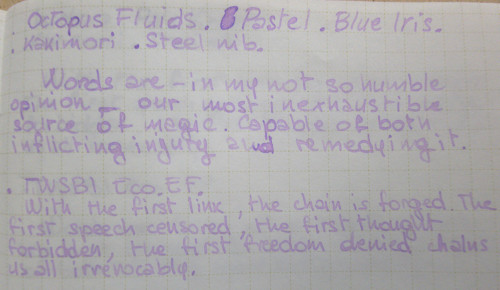 Octopus Fluids. Pastel. Blue Iris.
. Kakimori . Steel nib.
Words are - in my not so humble
opinion - our most inexhaustible
source of magic. Capable of both
inflicting ingury and remedying it.
. TWSBI Eco. EF.
With the first link, the chain is forged. The
first speech censored, the first thought
forbidden, the first freedom denied chains
us all irrevocably.